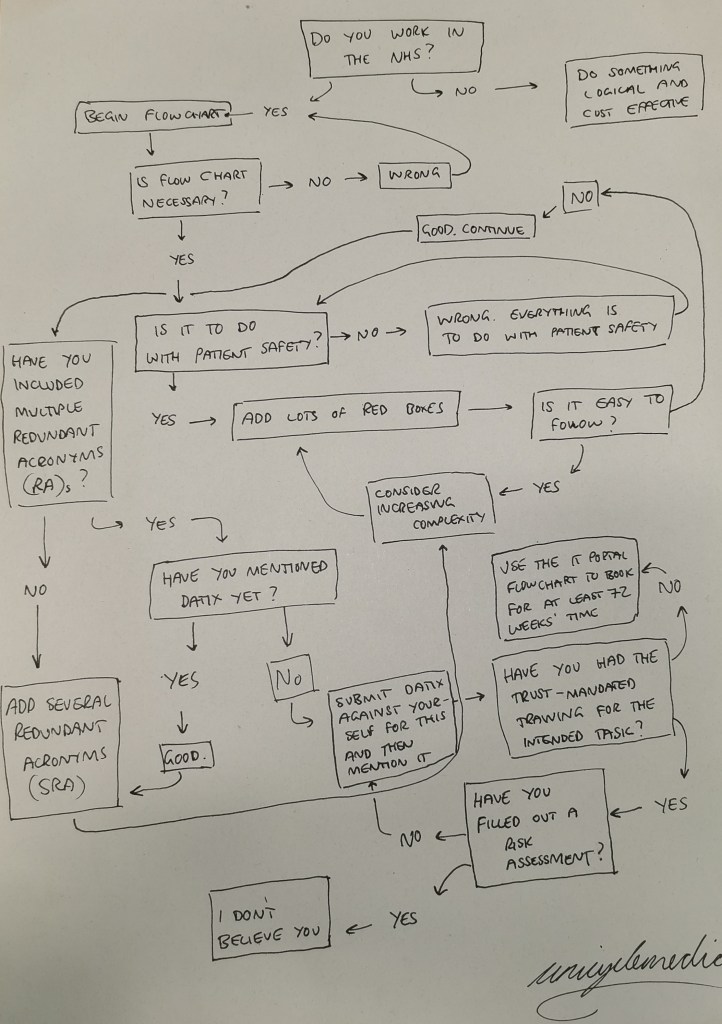 DO YOU WORK IN
THE NHS?
NO
DO SOMETHING
LOGICAL AND
COST EFFECTIVE
BEGIN FLOWCHART
YES
IS FLOW CHART
NECESSARY?
NO
WRONG
NO
GOOD. CONTINUE
YES
IS IT TO DO
WITH PATIENT SAFETY?
NO
WRONG. EVERYTHING IS
TO DO WITH PATIENT SAFETY
HAVE YOU
INCLUDED
MULTIPLE
REDUNDANT
ACRONYMS
(RA)s ?
YES
ADD LOTS OF RED BOXES
IS IT EASY TO
FOLLOW?
YES
CONSIDER
INCREASING
COMPLEXITY
YES
HAVE YOU MENTIONED
DATIX YET?
USE THE IT PORTAL
FLOWCHART TO BOOK
FOR AT LEAST 72
WEEKS' TIME
NO
NO
YES
NO
ADD SEVERAL
REDUNDANT
ACRONYMS
(SRA)
GOOD.
SUBMIT DATIX
AGAINST YOUR-
SELF FOR THIS
AND THEN
MENTION IT
HAVE YOU HAD THE
TRUST-MANDATED
TRAINING FOR THE
INTENDED TASK?
YES
HAVE YOU
FILLED OUT A
RISK
ASSESSMENT?
NO
YES
I DON'T
BELIEVE YOU
unicyclemedic